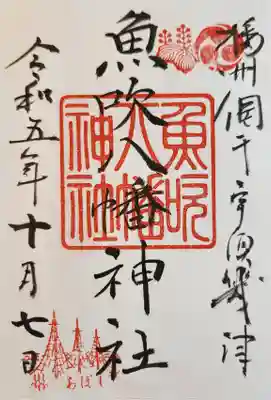 播州網干宇須幾津
魚吹八幡神社
魚吹八幡神社
令和五年十月七日
あぼし